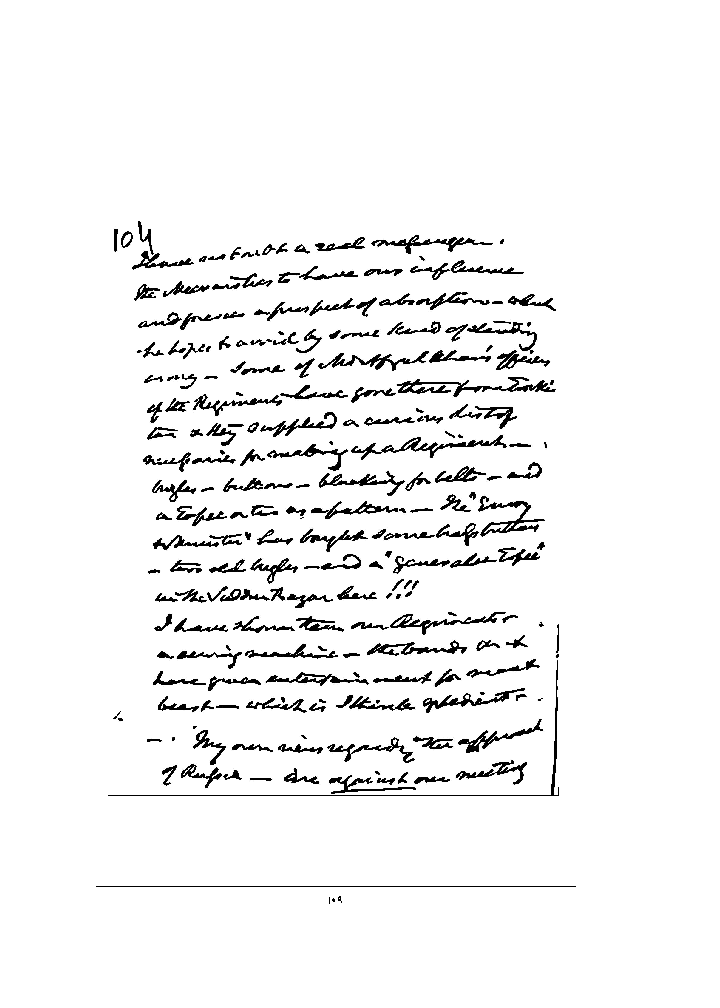 104
I have not with a real messenger.
The wishes to have our influence
and foresees a prospect of absorption — which
he hopes to avoid by some kind of
— Some of Khan's officers
of the Regiments have gone there from
& they supplied a curious list of
necessaries for making up a Regiment —
bugles — buttons — blacking for belts — and
a Topee or two as a pattern — The "Envoy
& Minister" has bought some bugle buttons
— two old bugles — and a " Topee"
in the Sudder Bazar here !!!
I have shown them our Regiments &
a sewing machine — the bands &
have given entertainment for man &
beast — which is I think expedient —
— My own views regarding "the approach
of Russia — are against our meeting
109